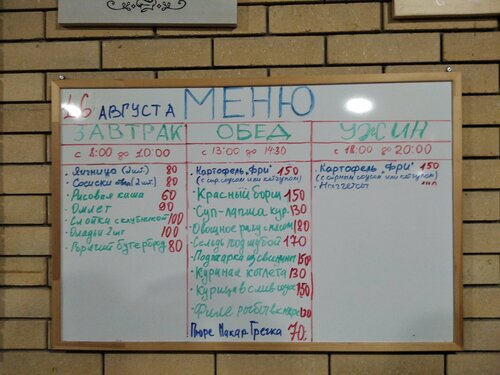 16 АВГУСТА МЕНЮ
ЗАВТРАК
с 8:00 до 10:00
· Яичница (2шт.) 80
· Сосиски (2шт.) 80
· Рисовая каша 60
· Омлет 90
· Слойки с клубникой 100
· Оладьи 2шт 100
· Горячий бутерброд 80
ОБЕД
с 13:00 до 14:30
· Картофель "Фри" 150
(с сырн.соусом или кетчупом)
· Красный борщ 150
· Суп-лапша кур. 130
· Овощное рагу с мясом 180
· Сельдь под шубой 170
· Поджарка из свинины 150
· Куриная котлета 130
· Курица в слив. соусе 150
· Филе рыбы в кляре 130
Пюре Макар. Гречка 70
УЖИН
с 18:00 до 20:00
· Картофель "Фри" 150
(с сырным соусом или кетчупом)
· Наггетсы